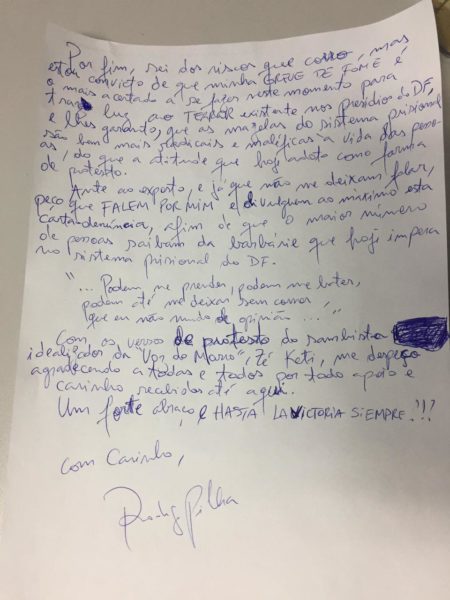 Por fim, sei dos riscos que corro, mas
estou convicto de que minha GREVE DE FOME é
o mais acertado a se fazer neste momento para
trazer luz ao TERROR existente nos presídios do DF,
e lhes garanto, que as mazelas do sistema prisional
são bem mais radicais e maléficas à vida das pesso-
as, do que a atitude que hoje adoto como forma
de protesto.
Ante ao exposto, e já que não me deixam falar,
peço que FALEM POR MIM e divulguem ao máximo esta
carta-denúncia, afim de que o maior número
de pessoas saibam da barbárie que hoje impera
no sistema prisional do DF.
"... Podem me prender, podem me bater,
podem até me deixar sem comer,
que eu não mudo de opinião ..."
Com os verso de protesto do sambista
idealizador da "Voz do Morro", Zé Keti, me despeço
agradecendo a todas e todos por todo apoio e
carinho recebidos até aqui.
Um forte abraço, e HASTA LA VICTORIA SIEMPRE!!!
Com Carinho,
Rodrigo Pilha